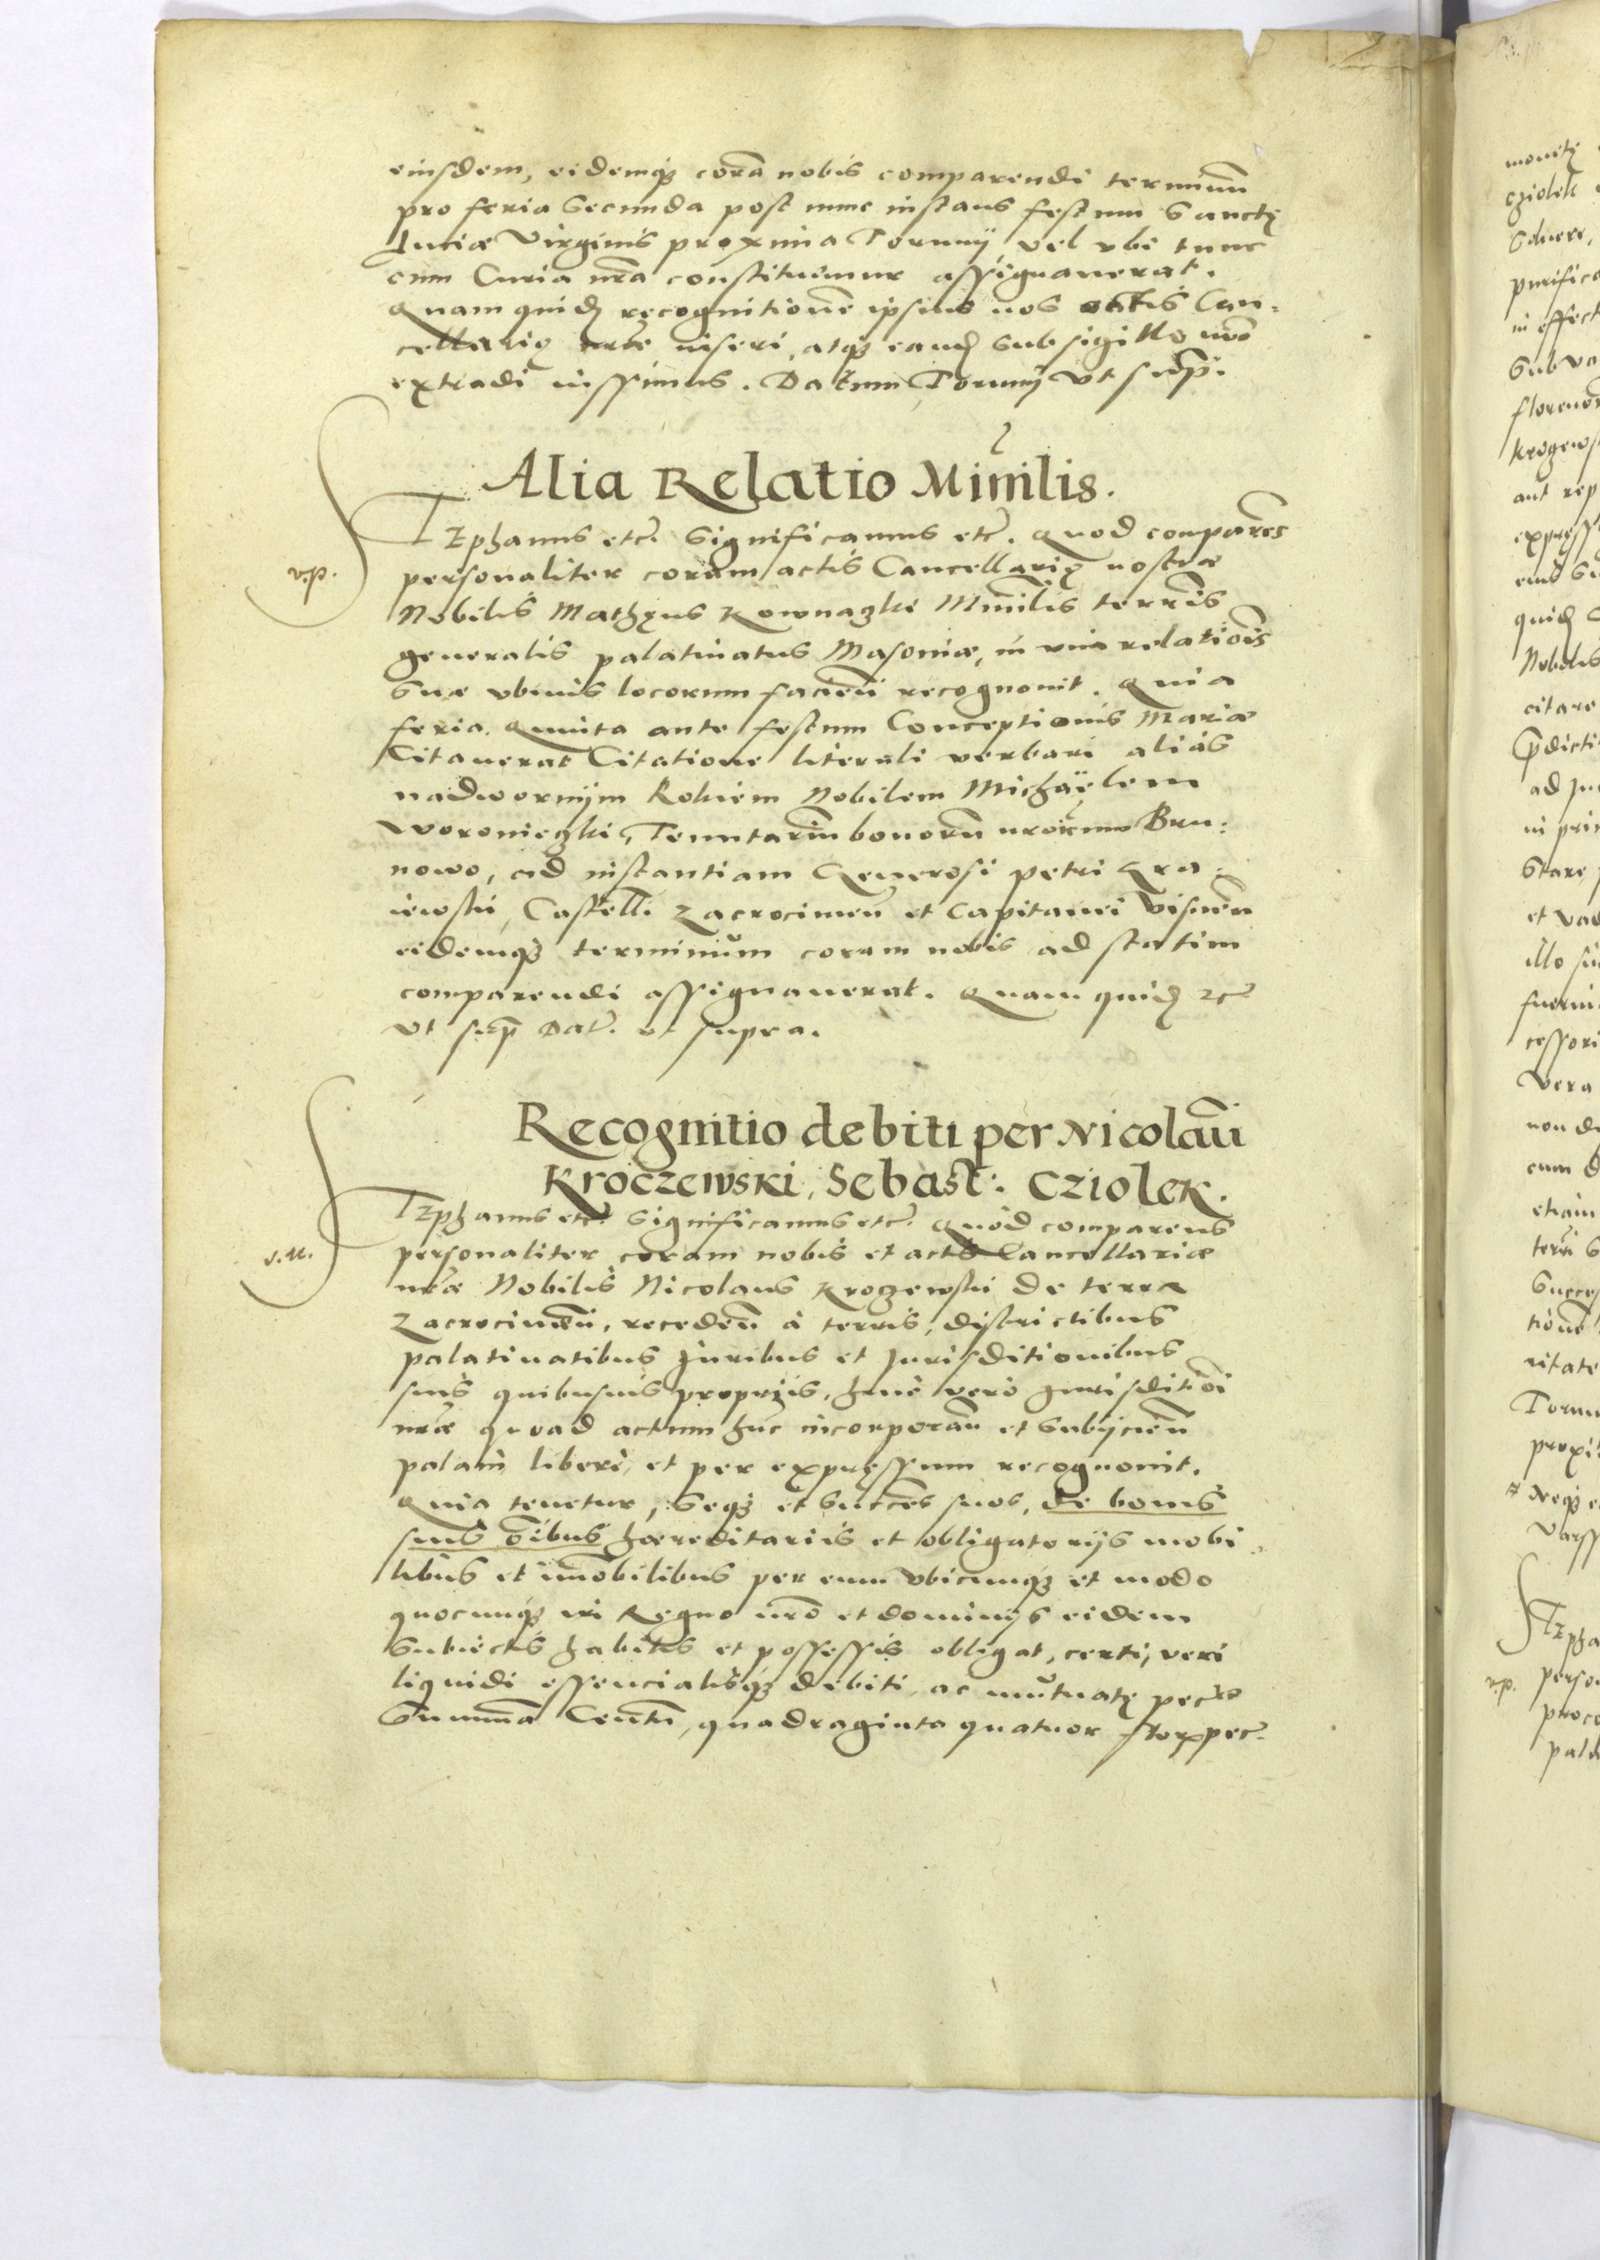 eiusdem, eidemq₃ corã nobis comparendi terminũ
pro feria Secunda post nunc instans festum Sanctę
Luciæ Virginis proxima Torunij, vel vbi tunc
cum Curia nr̃a constituimur assignauerat.
Quam quid̃ recognitionẽ ipsius nos actis Can-
cellarię nr̃æ inseri, atq₃ eand̃ sub sigillo nr̃o
extradi iussimus. Datum Torunij Vt sup̃.
Alia Relatio Minĩlis.
v.p.
STEphanus etc. Significamus etc. Quod comparẽs
personaliter coram actis Cancellarię nostræ
Nobilis Mathęus Kownaczki Minĩlis terrĩs
generalis palatinatus Masoniæ, in vim relatiõis
suæ vbiuis locorum facieñ recognouit. Quia
feria Quinta ante festum Conceptionis Mariæ
Citauerat Citatione literali verbari aliàs
nadwornijm Rokiem Nobilem Michaëlem
Woronieczki, Tenutariũ bonorũ nr̃orum Bru-
nowo, ad instantiam Generosi Petri Gra-
iewski, Castell. Zacrocimeñ et Capitanei Visneñ
eidemq₃ terminum coram nobis ad statim
comparendi assignauerat. Quam quid̃ etc
vt sup̃ Dat. vt supra.
Recognitio debiti per Nicolaũ
Kroczewski, Sebast: Cziolek.
v.u.
STEphanus etc. Significamus etc. Quòd comparens
personaliter coram nobis et actis Cancellariæ
nr̃æ Nobilis Nicolaus Kroczewski de terra
Zacrocimeñ, recedeñ à terris, districtibus
palatinatibus Juribus et Jurisditionibus
suis quibusuis proprijs, huic verò Jurisditiõi
nr̃æ quoad actum hũc incorporañ et subijcieñ
palàm liberè, et per expręssum recognouit.
Quia tenetur, Seq₃ et Succes̃ suos, de bonis
suis õibus hæreditariis et obligatorijs mobi
libus et im̃obilibus per eum vbicunq₃ et modo
quocunq₃ in Regno nr̃o et dominijs eidem
Subiectis habitis et possessis obligat, certi, veri
liquidi essencialisq₃ debiti, ac mutuatę pec̃
Summa Centũ, quadraginta quatuor flor. pec.